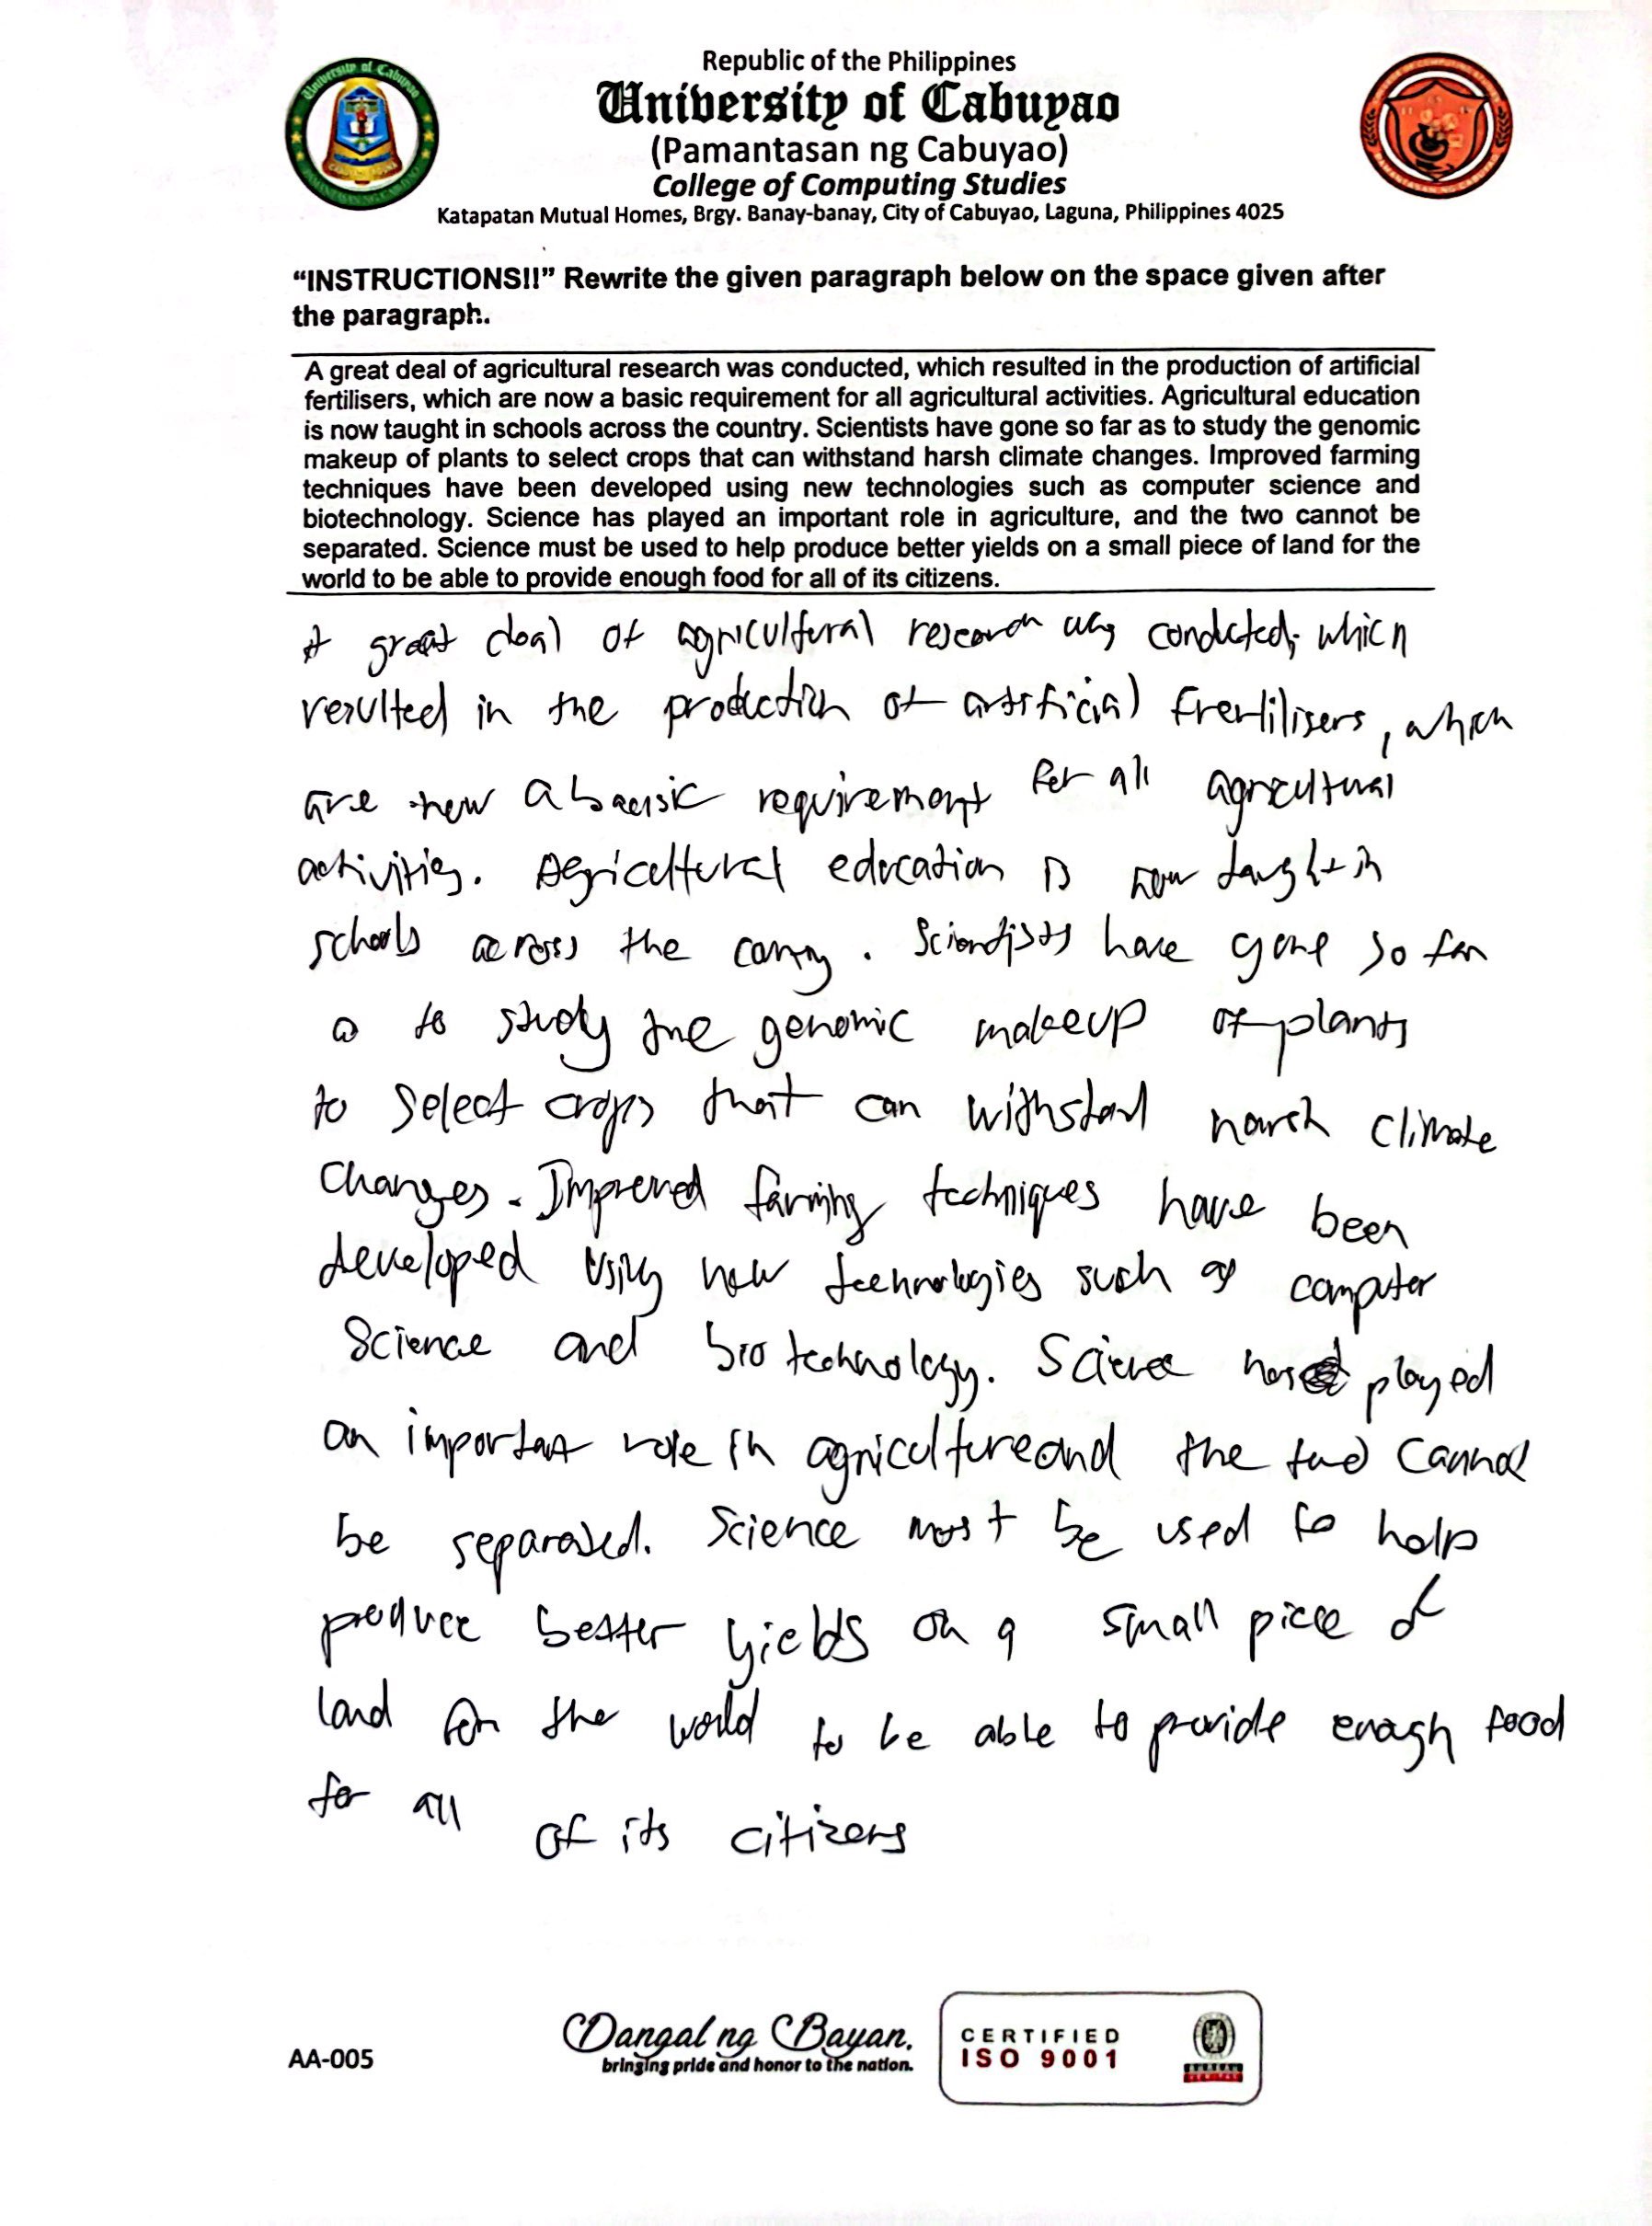 Republic of the Philippines
University of Cabuyao
(Pamantasan ng Cabuyao)
College of Computing Studies
Katapatan Mutual Homes, Brgy. Banay-banay, City of Cabuyao, Laguna, Philippines 4025
“INSTRUCTIONS!!” Rewrite the given paragraph below on the space given after
the paragraph.
A great deal of agricultural research was conducted, which resulted in the production of artificial
fertilisers, which are now a basic requirement for all agricultural activities. Agricultural education
is now taught in schools across the country. Scientists have gone so far as to study the genomic
makeup of plants to select crops that can withstand harsh climate changes. Improved farming
techniques have been developed using new technologies such as computer science and
biotechnology. Science has played an important role in agriculture, and the two cannot be
separated. Science must be used to help produce better yields on a small piece of land for the
world to be able to provide enough food for all of its citizens.
A great deal of agricultural research was conducted, which
resulted in the production of artificial frertilisers, which
are now a basic requirement for all agricultural
activities. Agricultural education is now taught in
schools across the . Scientists have gone so far
as to study the genomic makeup of plants
to select crops that can withstand harsh climate
changes. Improved farming techniques have been
developed using new technologies such as computer
Science and biotechnology. Science has played
an important role in agriculture and the two cannot
be separated. Science must be used to help
produce better yields on a small piece of
land for the world to be able to provide enough food
for all of its citizens
AA-005
Dangal ng Bayan.
bringing pride and honor to the nation.
CERTIFIED
ISO 9001